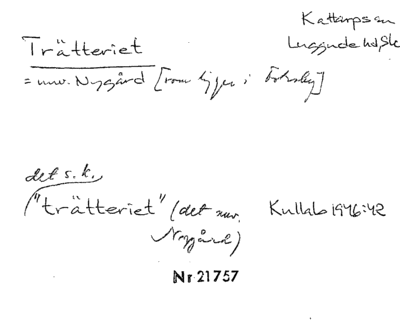 Kattarps sn
Luggude hd, Sk
Trätteriet
= nuv. Nygård [som ligger i
det s. k.
"trätteriet" (det nuv. Kullab 1946:42
Nygård)
Nr 21757